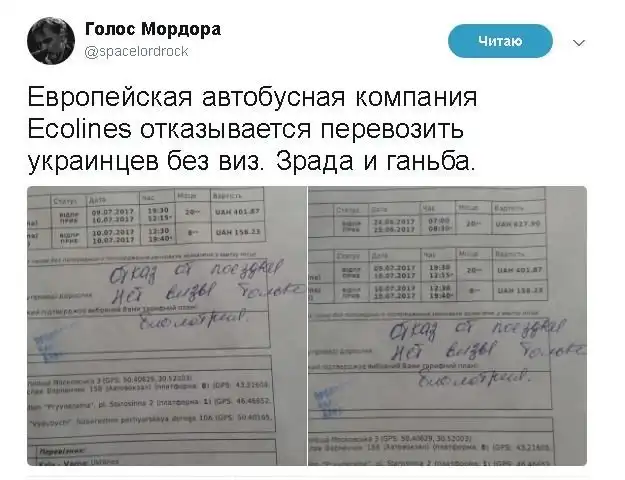 Голос Мордора
@spacelordrock
Читаю
Европейская автобусная компания
Ecolines отказывается перевозить
украинцев без виз. Зрада и ганьба.
Статус Дата Час Місце Вартість
ВІДПР 09.07.2017 19:30 20 UAH 401.87
ПРИБ 10.07.2017 12:15
ВІДПР 10.07.2017 12:30 8 UAH 158.23
ПРИБ 10.07.2017 19:40
Отказ от поездки
Нет визы только
биометрия.
Московська 3 (GPS: 50.40629, 30.52003)
158 (Автовокзал) (платформа: 8) (GPS: 43.21608,
"Pryvorzalna", pl. Starosinna 2 (платформа: 1) (GPS: 46.46652,
"Vydubychi" 10A (GPS: 50.40165,
Перевізник:
Kyiv - Varna:
Статус Дата Час Місце Вартість
ВІДПР 07:00 20 UAH 627.90
ПРИБ
ВІДПР 09.07.2017 19:30 20 UAH 401.87
ПРИБ 10.07.2017 12:15
ВІДПР 10.07.2017 12:30 8 UAH 158.23
ПРИБ 10.07.2017 19:40
Отказ от поездки
Нет визы только
биометрия.
Московська 3 (GPS: 50.40629, 30.52003)
158 (Автовокзал) (платформа: 8) (GPS: 43.21608,
(платформа: 1) (GPS: 46.46652,